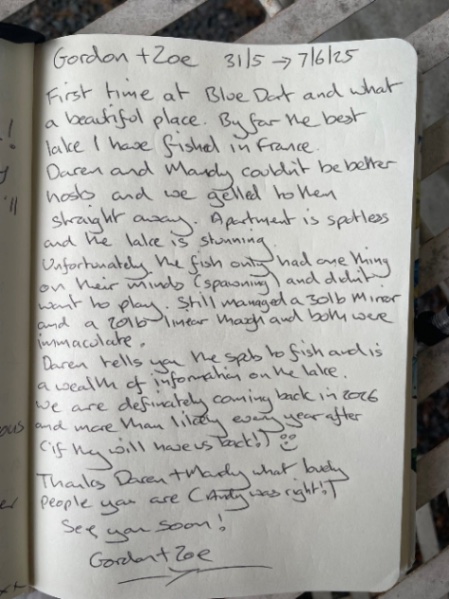 Gordon + Zoe 31/5 → 7/6/25
First time at Blue Dart and what
a beautiful place. By far the best
lake I have fished in France.
Daren and Mandy couldn't be better
hosts and we gelled to them
straight away. Apartment is spotless
and the lake is stunning.
Unfortunately the fish only had one thing
on their minds (spawning) and didn't
want to play. Still managed a 30lb mirror
and a 20lb linear though and both were
immaculate.
Daren tells you the spots to fish and is
a wealth of information on the lake.
We are definately coming back in 2026
and more than likely every year after
(if they will have us back!)
Thanks Daren + Mandy what lovely
people you are (Andy was right!)
See you soon!
Gordon + Zoe